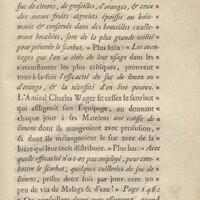 suc de citrons, de groseilles, d'oranges, & ceux
des autres fruits aigrelets épaissis au bain-
marie & conservés dans des bouteilles exacte-
ment bouchées, sont de la plus grande utilité
pour prévenir le scorbut. » Plus loin : « Les avan-
tages que l'on a tirés de leur usage dans les
circonstances les plus critiques, prouvent
tout-à-la-fois l'efficacité du suc de limon ou
d'orange, & la nécessité d'en être pourvu.
L'Amiral Charles Wager fit cesser le scorbut
qui affligeoit son Equipage, en donnant
chaque jour à ses Matelots une caisse de
limons dont ils mangeoient avec profusion,
& dont ils mélangeoient le suc avec de la
bière qui leur étoit distribuée. » Plus bas : « Avec
quelle efficacité n'a-t-on pas employé, pour com-
battre le scorbut, quelques cuillerées de suc de
limons, prises deux fois par jour avec un
peu de vin de Malaga & d'eau ! » Page 146 :